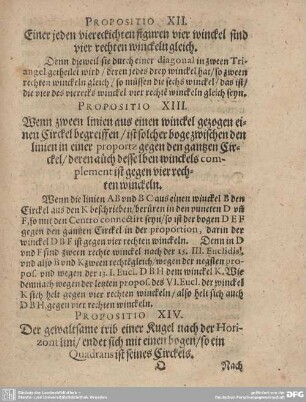 PROPOSITIO XII.
Einer jeden viereckichten figuren vier winckel sind
vier rechten winckeln gleich.
Denn dieweil sie durch einer diagonal in zween Tri-
angel getheilet wird / deren jedes drey winckel hat / so zween
rechten winckeln gleich / so müssen die sechs winckel / das ist /
die vier des vierecks winckel vier rechte winckeln gleich seyn.
PROPOSITIO XIII.
Wenn zween linien aus einen winckel gezogen ei-
nen Circkel begreiffen / ist solcher boge zwischen den
linien in einer proportz gegen den gantzen Cir-
ckel / deren auch desselben winckels com-
plement ist gegen vier rech-
ten winckeln.
Wenn die linien AB und BC aus einen winckel B den
Circkel aus den K beschrieben / berüren in den puncten D und
F, so mit den Centro concentri seyn / so ist der bogen DEF
gegen den gantzen Circkel in der proportion, darin der
winckel DBF ist gegen vier rechten winckeln. Denn in D
und F sind zween rechte winckel nach der 15. III. Euclidis,
und also B und K zween rechte gleich, wegen der negsten pro-
pos. und wegen der 13. I. Eucl. DBH dem winckel K. Wie
demnach wegen der letzten propos. des VI. Eucl. der winckel
K sich helt gegen vier rechten winckeln / also helt sich auch
DBH gegen vier rechten winckeln.
PROPOSITIO XIV.
Der gewaltsame trib einer Kugel nach der Hori-
zont lini / endet sich mit einen bogen / so ein
Quadrans ist seines Circkels.
Q Nach